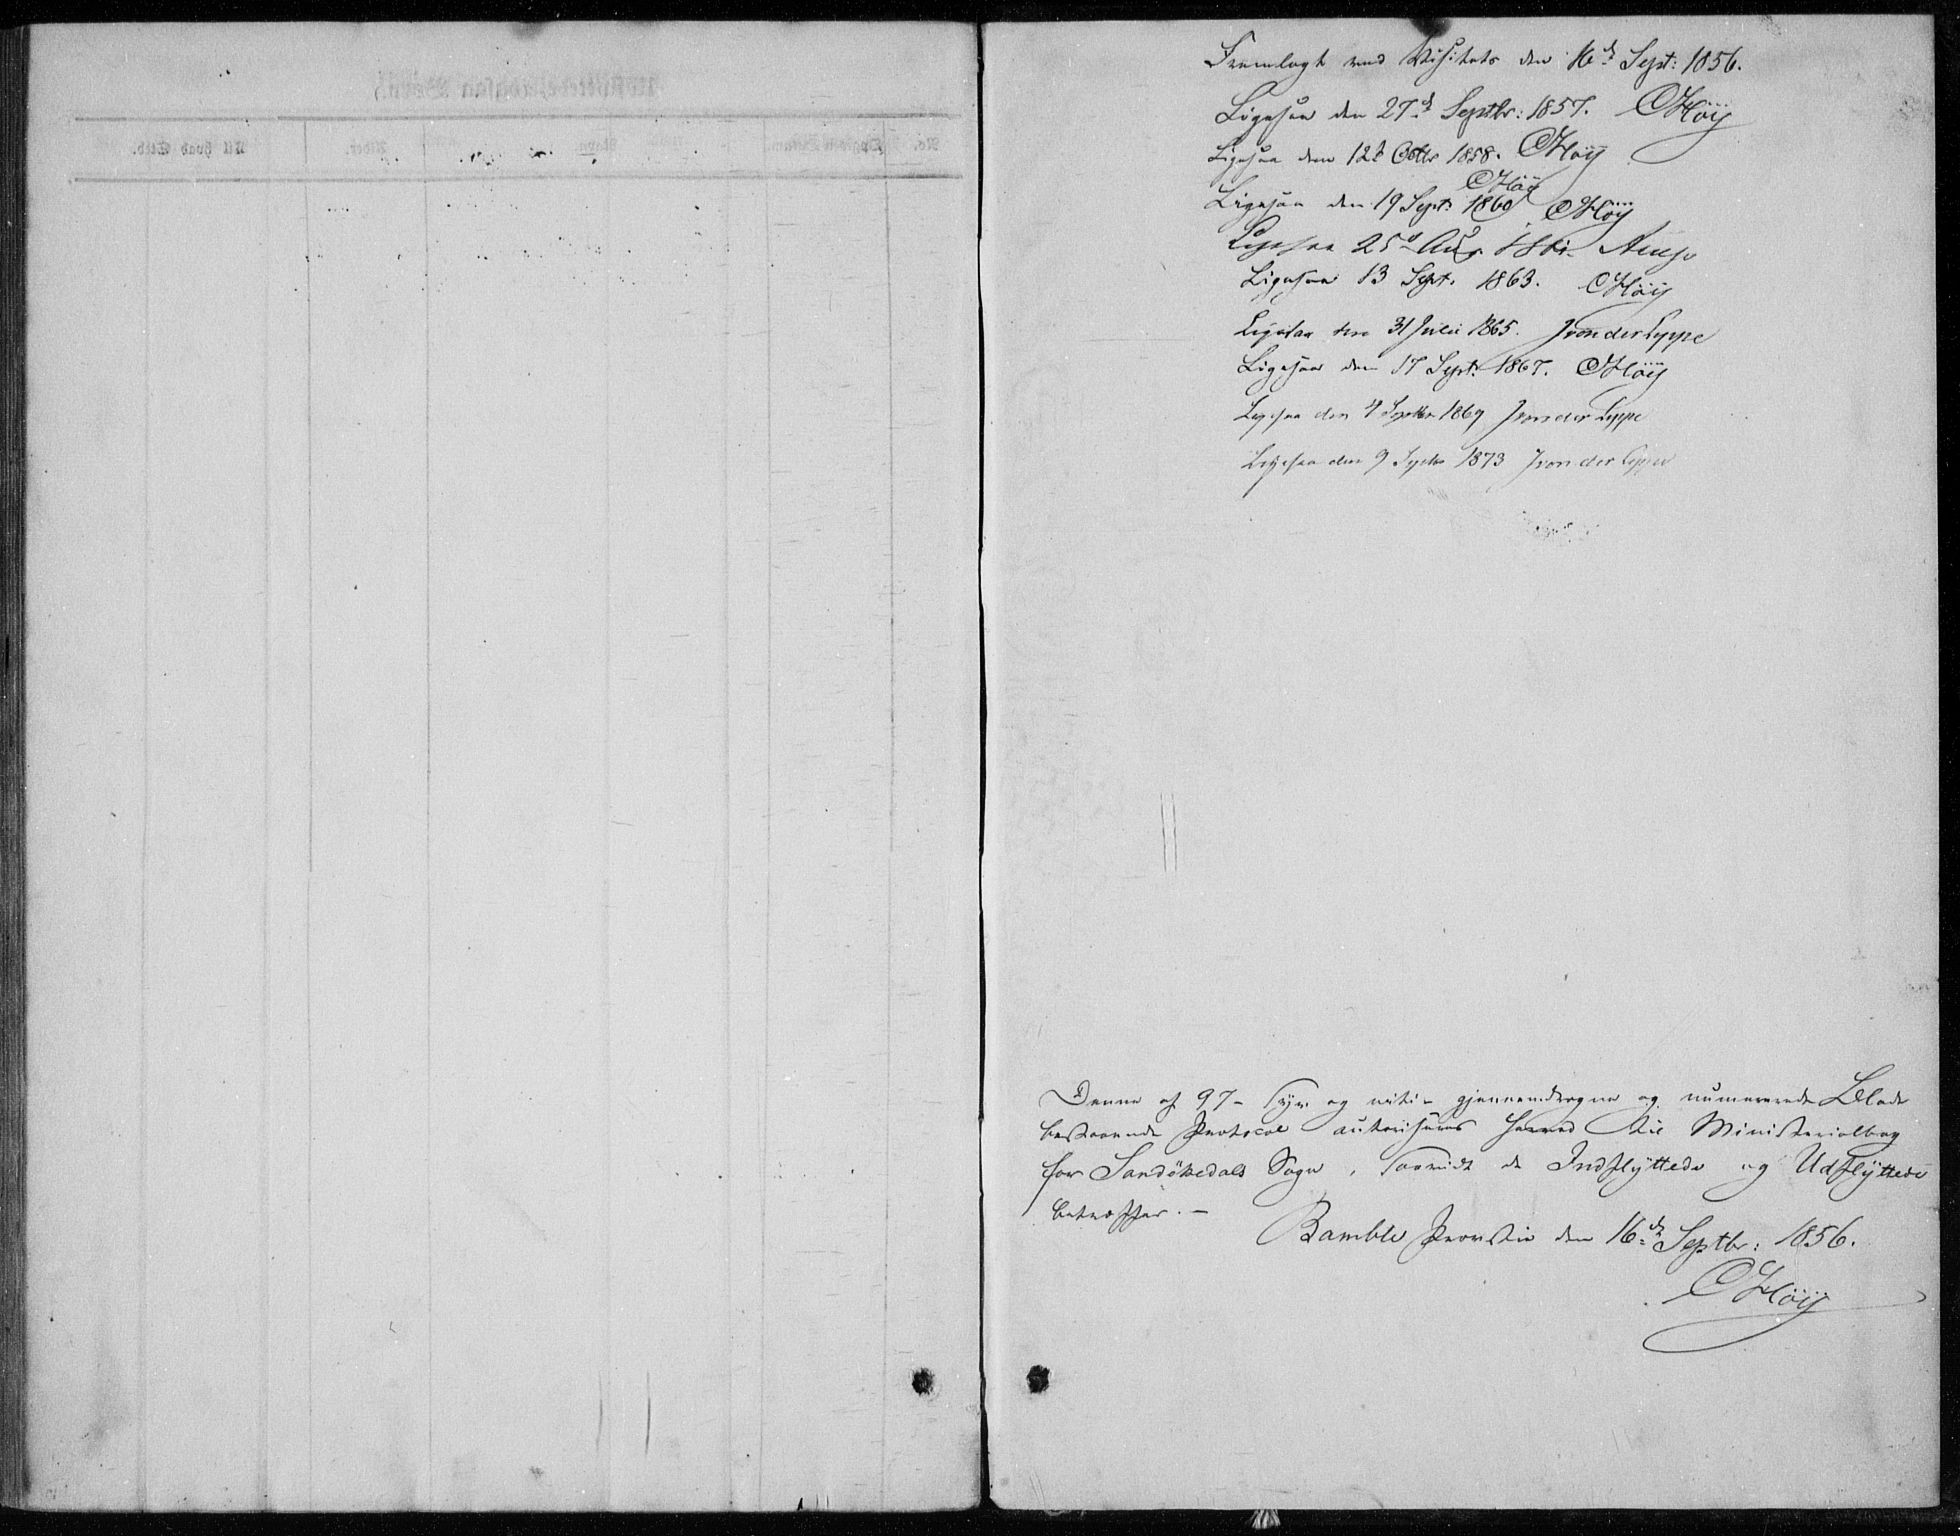 Fremlagt ved Visitats den 16d Sept: 1856.
Ligesaa den 27d Septbr: 1857. CHöij
Ligesaa den 12t Octbr 1858. CHöij
CHöij
Ligesaa den 19 Sept: 1860 CHöij
Ligesaa 25d Aug
Ligesaa 13 Sept. 1863. CHöij
Ligesaa den 31 Julii 1865. J von der Lippe
Ligesaa den 17 Sept: 1867. CHöij
Ligesaa den 4 Septbr 1869 J von der Lippe
Ligesaa den 9 Septbr 1873 J von der Lippe
Denne af 97 - syv og niti - gjennemdragne og numererede Blade
bestaaende Protocol autoriseres herved til Ministerialbog
for Sandökedals Sogn, saavidt de Indflyttede og Udflyttede
betræffer. -
Bamble Provsti den 16de Septbr: 1856.
CHöij